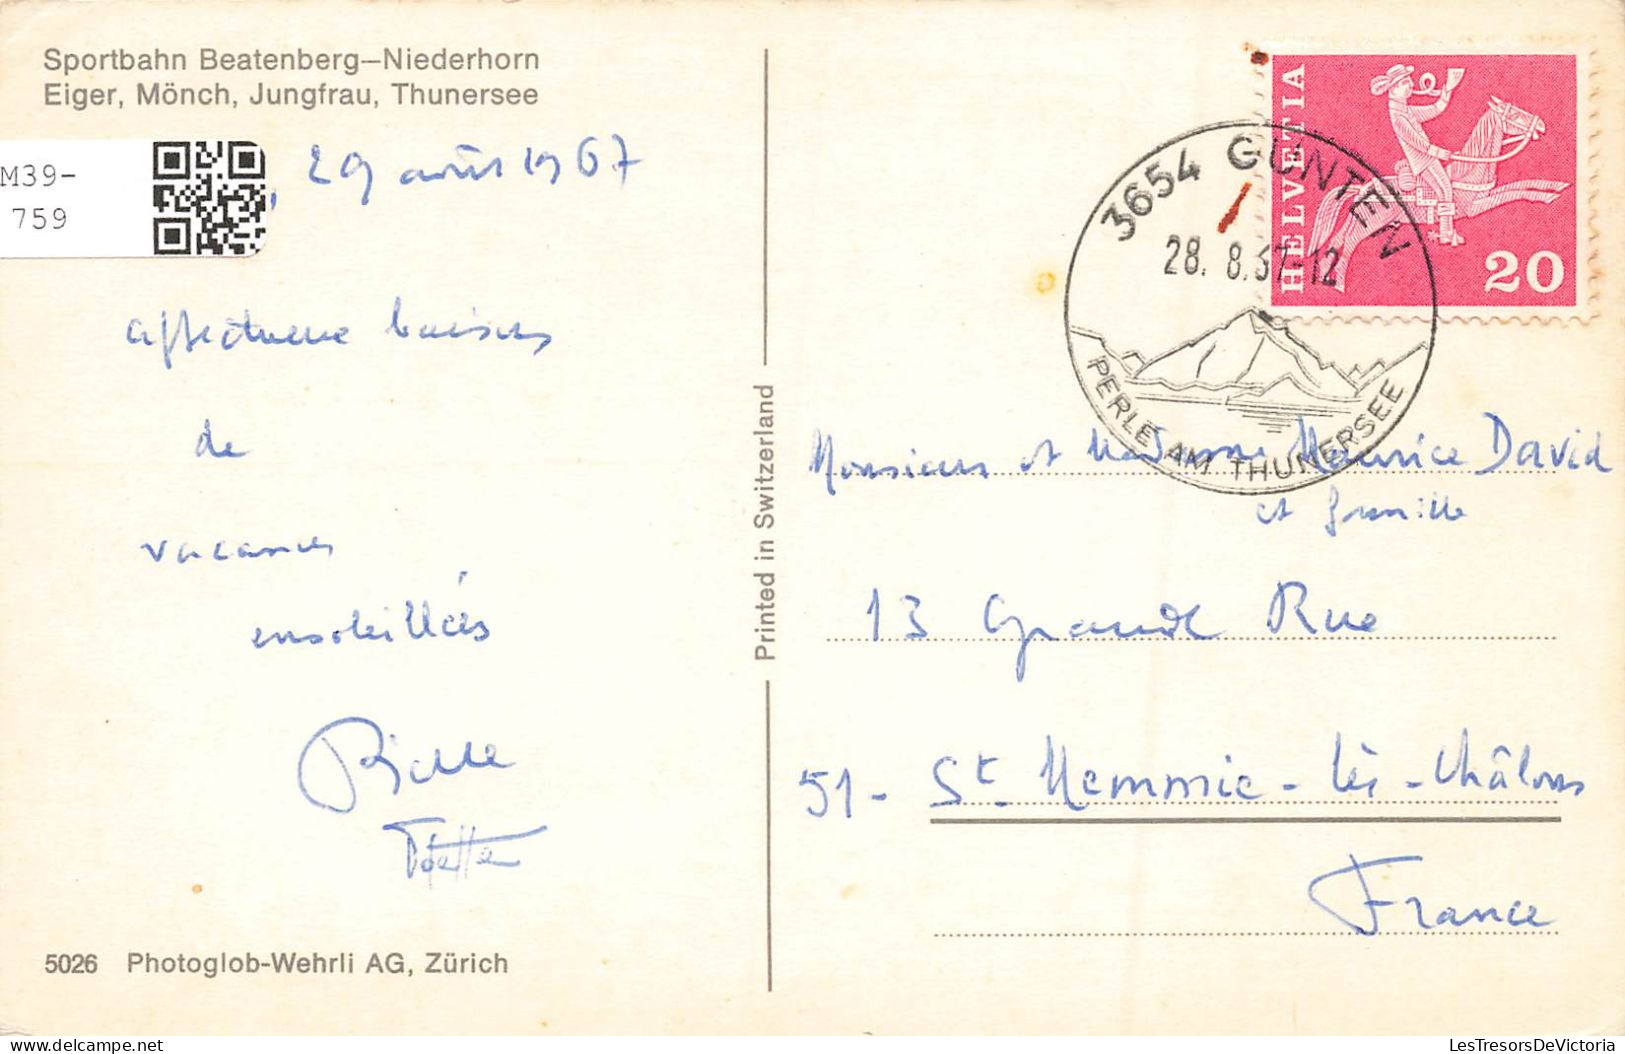 Sportbahn Beatenberg–Niederhorn
Eiger, Mönch, Jungfrau, Thunersee
M39-
759
, 29 août 1967
affectueux baisers
de
vacances
ensoleillées
5026 Photoglob-Wehrli AG, Zürich
Printed in Switzerland
HELVETIA
20
3654 GUNTEN
28. 8.67-12
PERLE AM THUNERSEE
Monsieur et Madame Maurice David
et famille
13 Grande Rue
51- St Memmie-lès-Châlons
France
LesTresorsDeVictoria.com